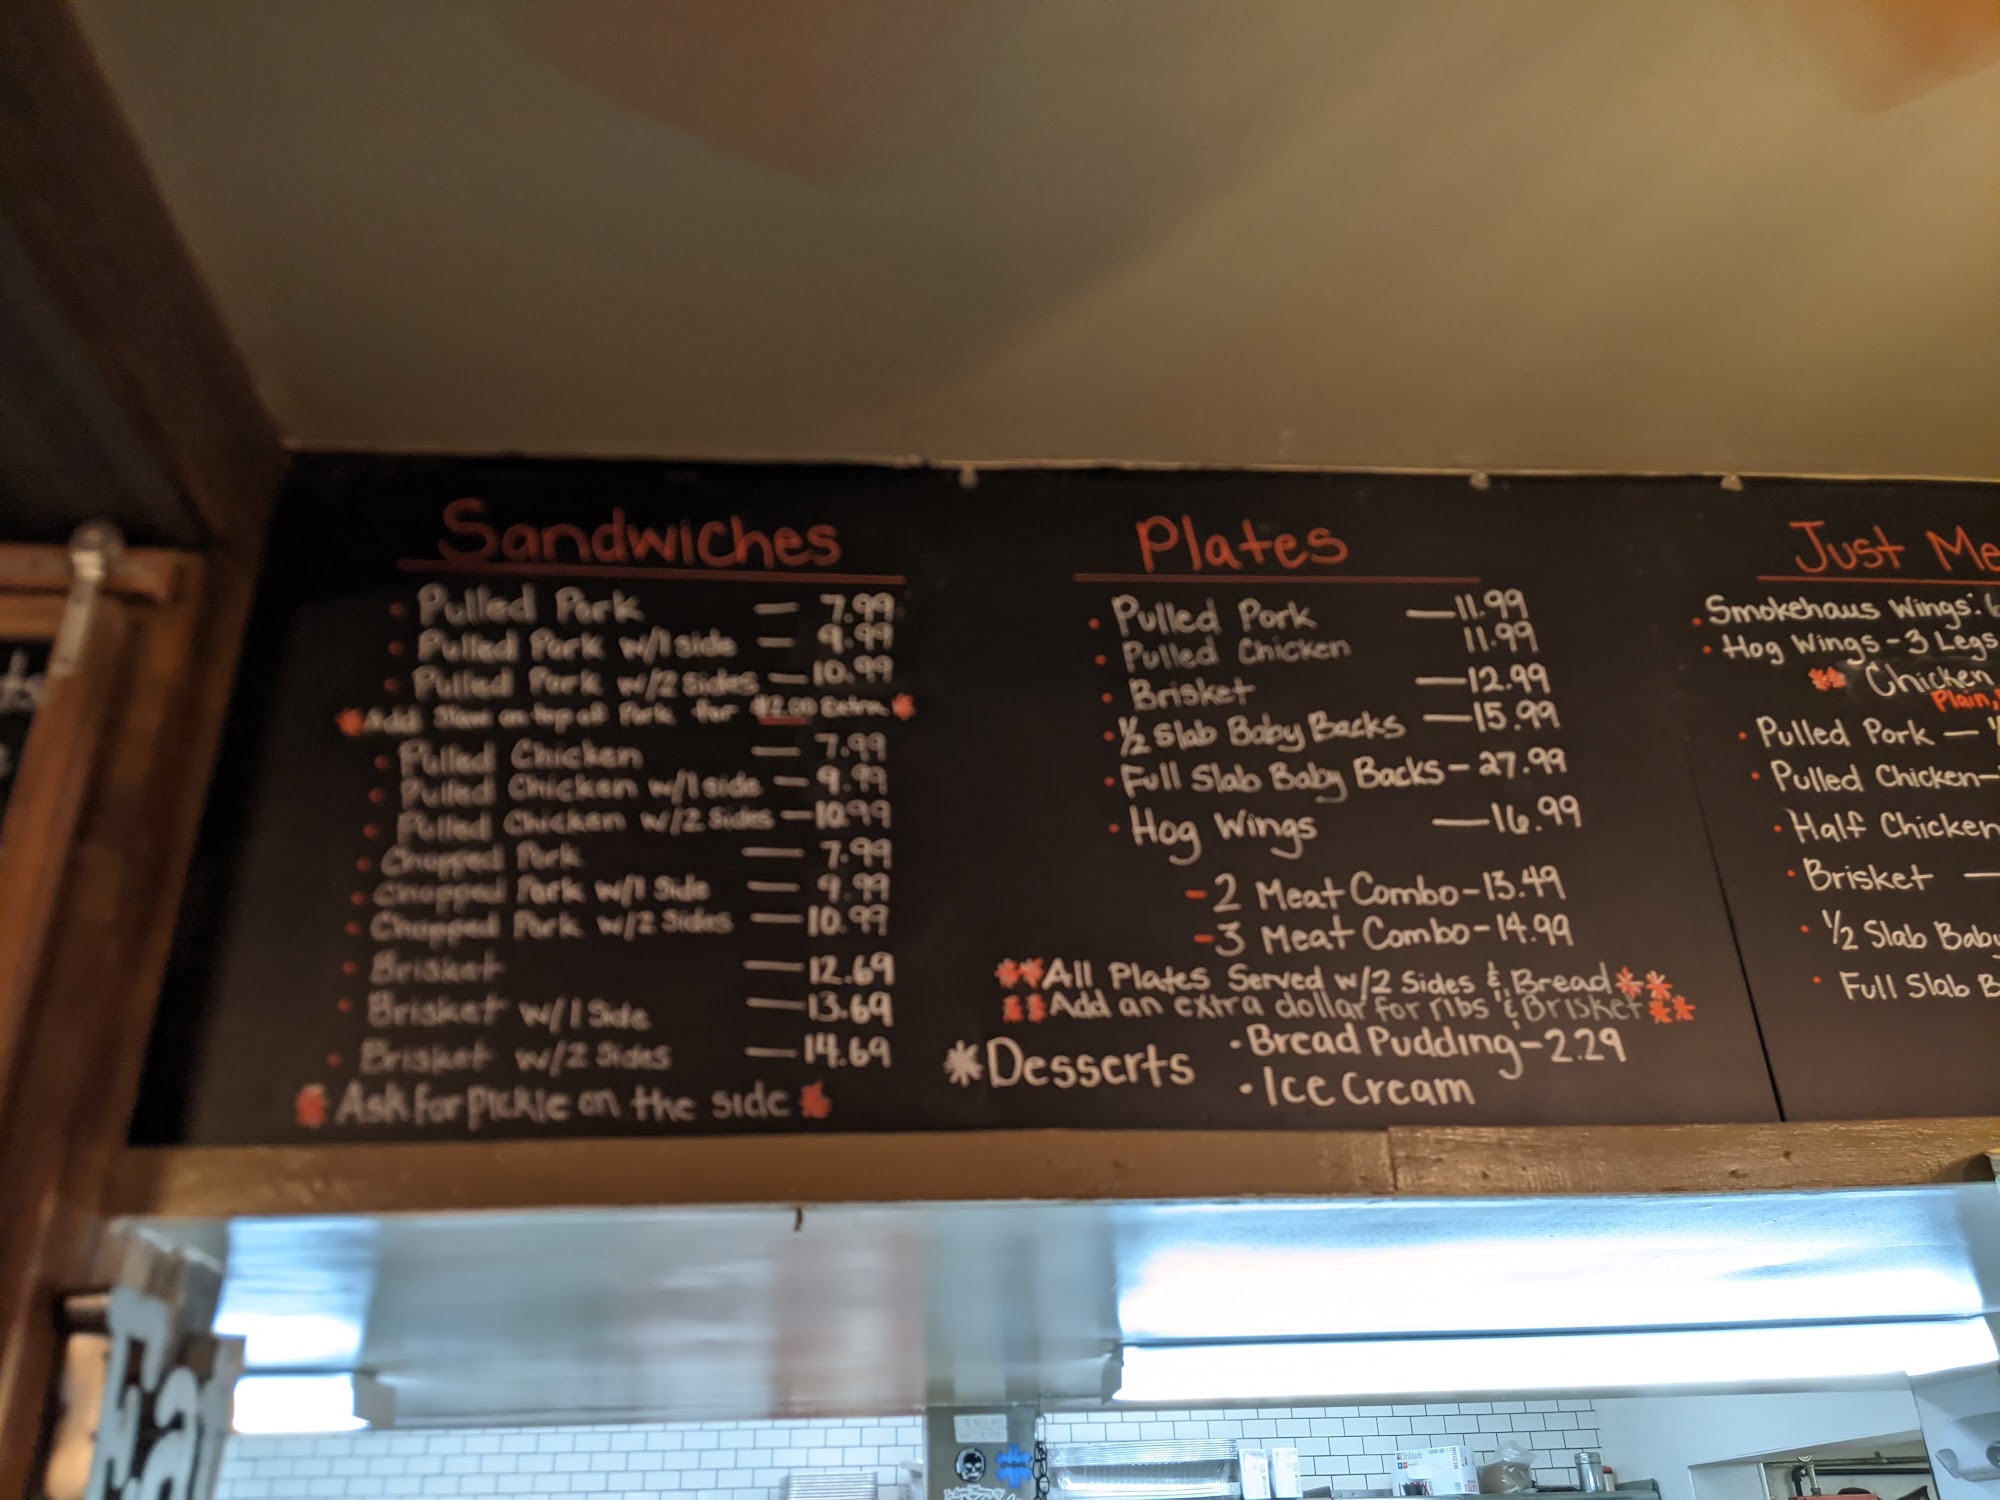 Sandwiches
• Pulled Pork — 7.99
• Pulled Pork w/1 side — 9.99
• Pulled Pork w/2 sides — 10.99
*Add Slaw on top of Pork for $2.00 Extra*
• Pulled Chicken — 7.99
• Pulled Chicken w/1 side — 9.99
• Pulled Chicken w/2 Sides — 10.99
• Chopped Pork — 7.99
• Chopped Pork w/1 Side — 9.99
• Chopped Pork w/2 Sides — 10.99
• Brisket — 12.69
• Brisket w/1 Side — 13.69
• Brisket w/2 Sides — 14.69
* Ask for pickle on the side *
Plates
• Pulled Pork — 11.99
• Pulled Chicken 11.99
• Brisket — 12.99
• 1/2 Slab Baby Backs — 15.99
• Full Slab Baby Backs - 27.99
• Hog Wings — 16.99
- 2 Meat Combo - 13.49
- 3 Meat Combo - 14.99
**All Plates Served w/2 Sides & Bread**
**Add an extra dollar for ribs & Brisket**
*Desserts
• Bread Pudding - 2.29
• Ice Cream
Just Me
• Smokehaus Wings: 6
• Hog Wings - 3 Legs
** Chicken
Plain,
• Pulled Pork —
• Pulled Chicken -
• Half Chicken
• Brisket —
• 1/2 Slab Baby
• Full Slab B
Eat